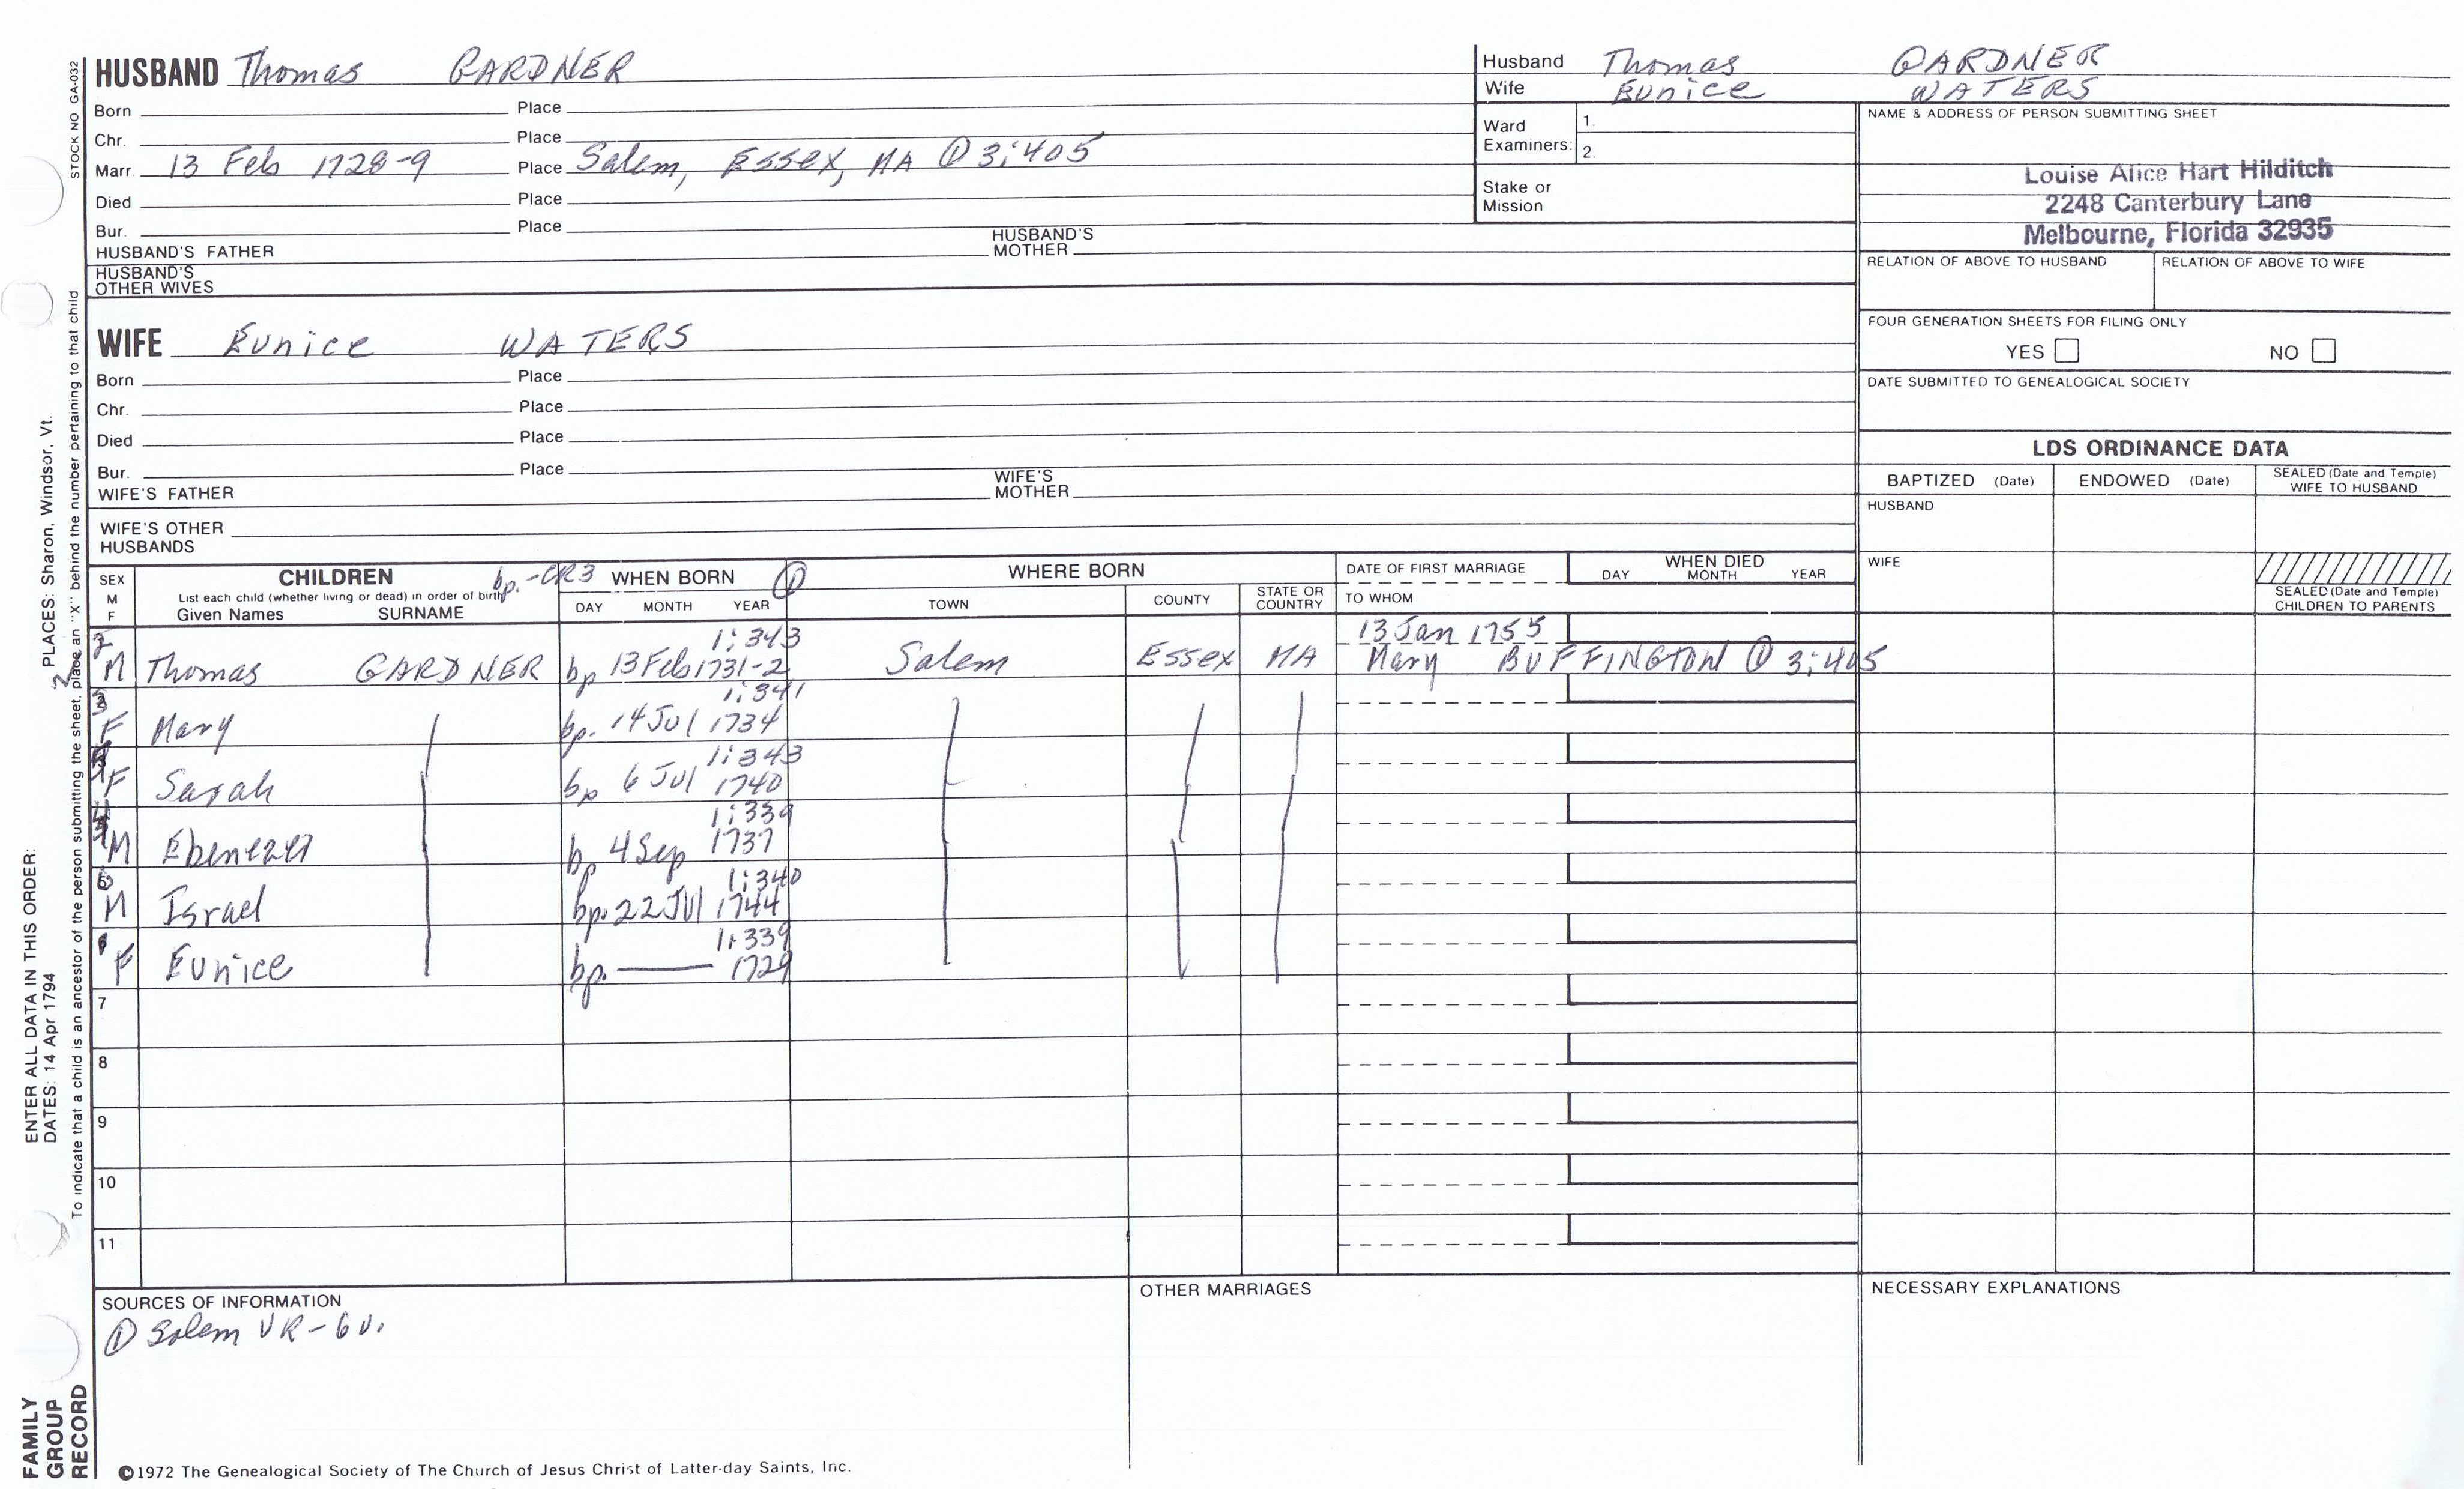 HUSBAND Thomas GARDNER
Born Place
Chr. Place
Marr. 13 Feb 1728-9 Place Salem, Essex, MA ① 3:405
Died Place
Bur. Place
HUSBAND'S FATHER HUSBAND'S MOTHER
HUSBAND'S OTHER WIVES
Husband Thomas GARDNER
Wife Eunice WATERS
Ward Examiners: 1.
2.
Stake or Mission
NAME & ADDRESS OF PERSON SUBMITTING SHEET
Louise Alice Hart Hilditch
2248 Canterbury Lane
Melbourne, Florida 32935
RELATION OF ABOVE TO HUSBAND RELATION OF ABOVE TO WIFE
FOUR GENERATION SHEETS FOR FILING ONLY
YES NO
DATE SUBMITTED TO GENEALOGICAL SOCIETY
WIFE Eunice WATERS
Born Place
Chr. Place
Died Place
Bur. Place
WIFE'S FATHER WIFE'S MOTHER
WIFE'S OTHER HUSBANDS
LDS ORDINANCE DATA
BAPTIZED (Date) ENDOWED (Date) SEALED (Date and Temple) WIFE TO HUSBAND
HUSBAND
WIFE
SEALED (Date and Temple) CHILDREN TO PARENTS
SEX M F
CHILDREN
List each child (whether living or dead) in order of birth
Given Names SURNAME
bp.-CR3 WHEN BORN ①
DAY MONTH YEAR
WHERE BORN
TOWN COUNTY STATE OR COUNTRY
DATE OF FIRST MARRIAGE
TO WHOM
WHEN DIED
DAY MONTH YEAR
1:343 13 Jan 1755
2 M Thomas GARDNER bp 13 Feb 1731-2 Salem Essex MA Mary BUFFINGTON ① 3:405
1:341
3 F Mary bp. 14 Jul 1734
1:343
F Sarah bp 6 Jul 1740
1:339
M Ebenezer bp 4 Sep 1737
1:340
M Israel bp. 22 Jul 1744
1:339
1 F Eunice bp. — 1729
7
8
9
10
11
SOURCES OF INFORMATION
① Salem VR-6v.
OTHER MARRIAGES
NECESSARY EXPLANATIONS
©1972 The Genealogical Society of The Church of Jesus Christ of Latter-day Saints, Inc.
FAMILY GROUP RECORD
ENTER ALL DATA IN THIS ORDER:
DATES: 14 Apr 1794 PLACES: Sharon, Windsor, Vt.
To indicate that a child is an ancestor of the person submitting the sheet, place an "X" behind the number pertaining to that child
STOCK NO GA-032